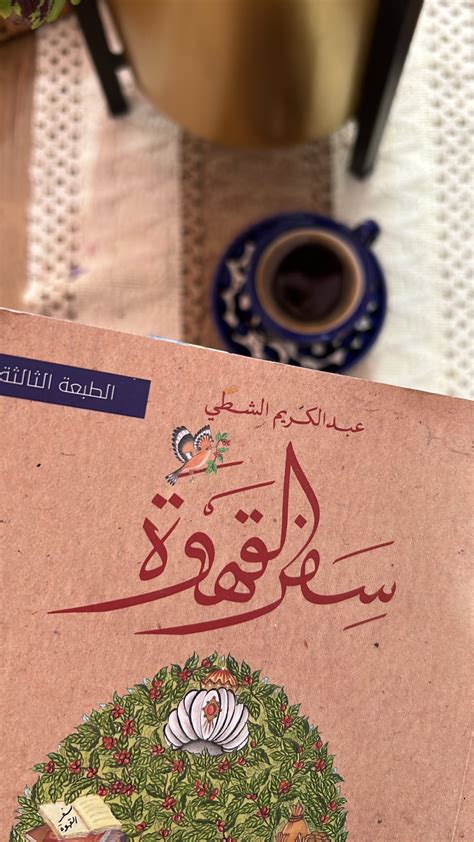 الطبعة الثالثة
عبدالكريم الشطي
سفر القهوة
سفر
القهوة